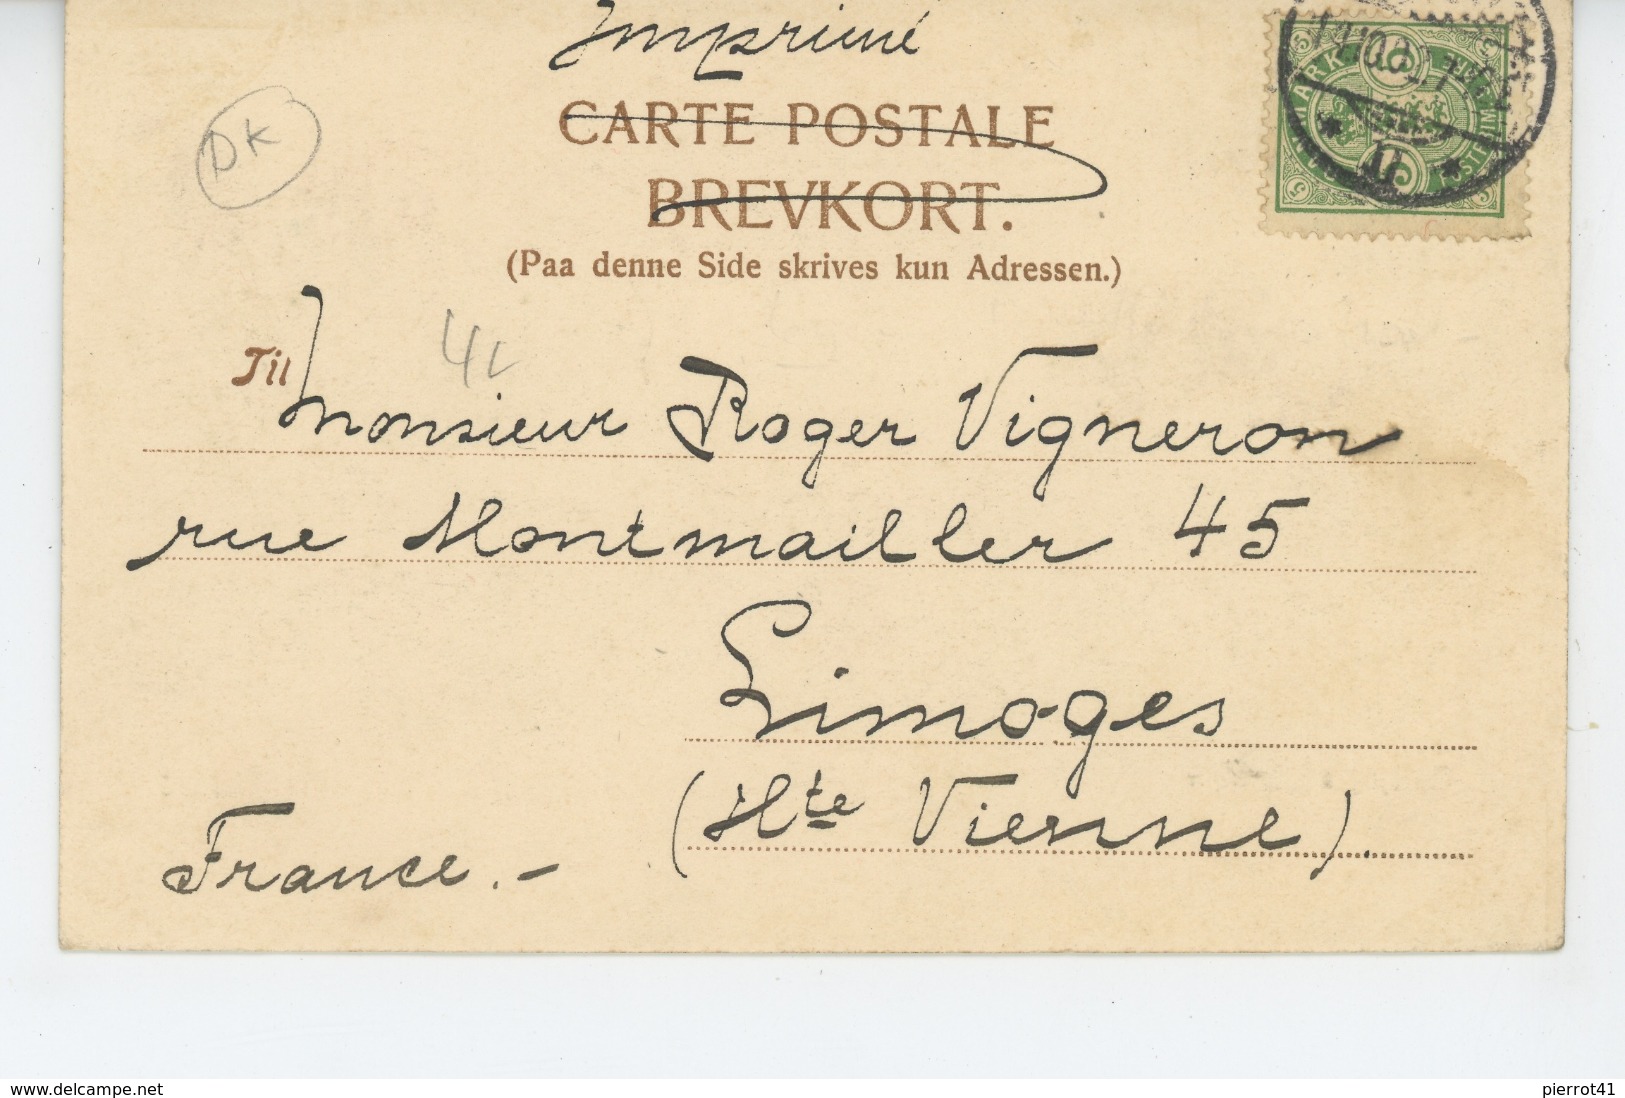 Imprimé
CARTE POSTALE
BREVKORT.
(Paa denne Side skrives kun Adressen.)
DK
Til
Monsieur Roger Vigneron
rue Montmailler 45
Limoges
(Hte Vienne).
France.-
www.delcampe.net
pierrot41